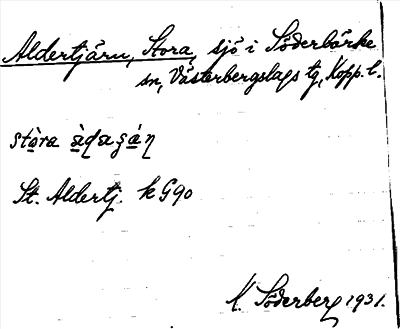 Aldertjärn, Stora, sjö i Söderbärke
sn, Västerbergslags tg, Kopp. l.
stòra
St. Aldertj. k G90
K. Söderberg 1931.